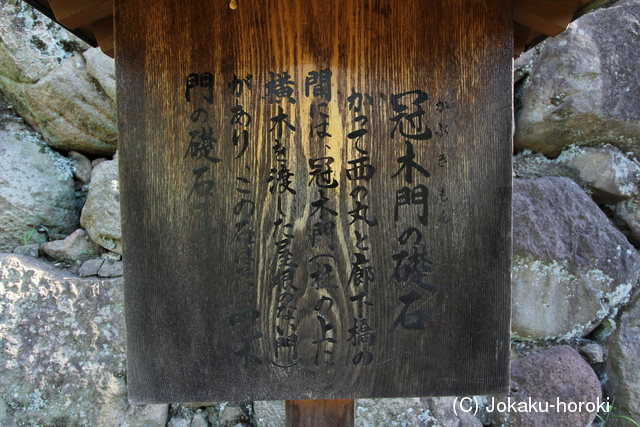 冠木門の礎石
かぶきもん
かつて西の丸と廊下橋の
間には、冠木門(柱の上に
横木を渡した屋根のない門)
があり、この石は 冠木
門の礎石
(C) Jokaku-horoki.com